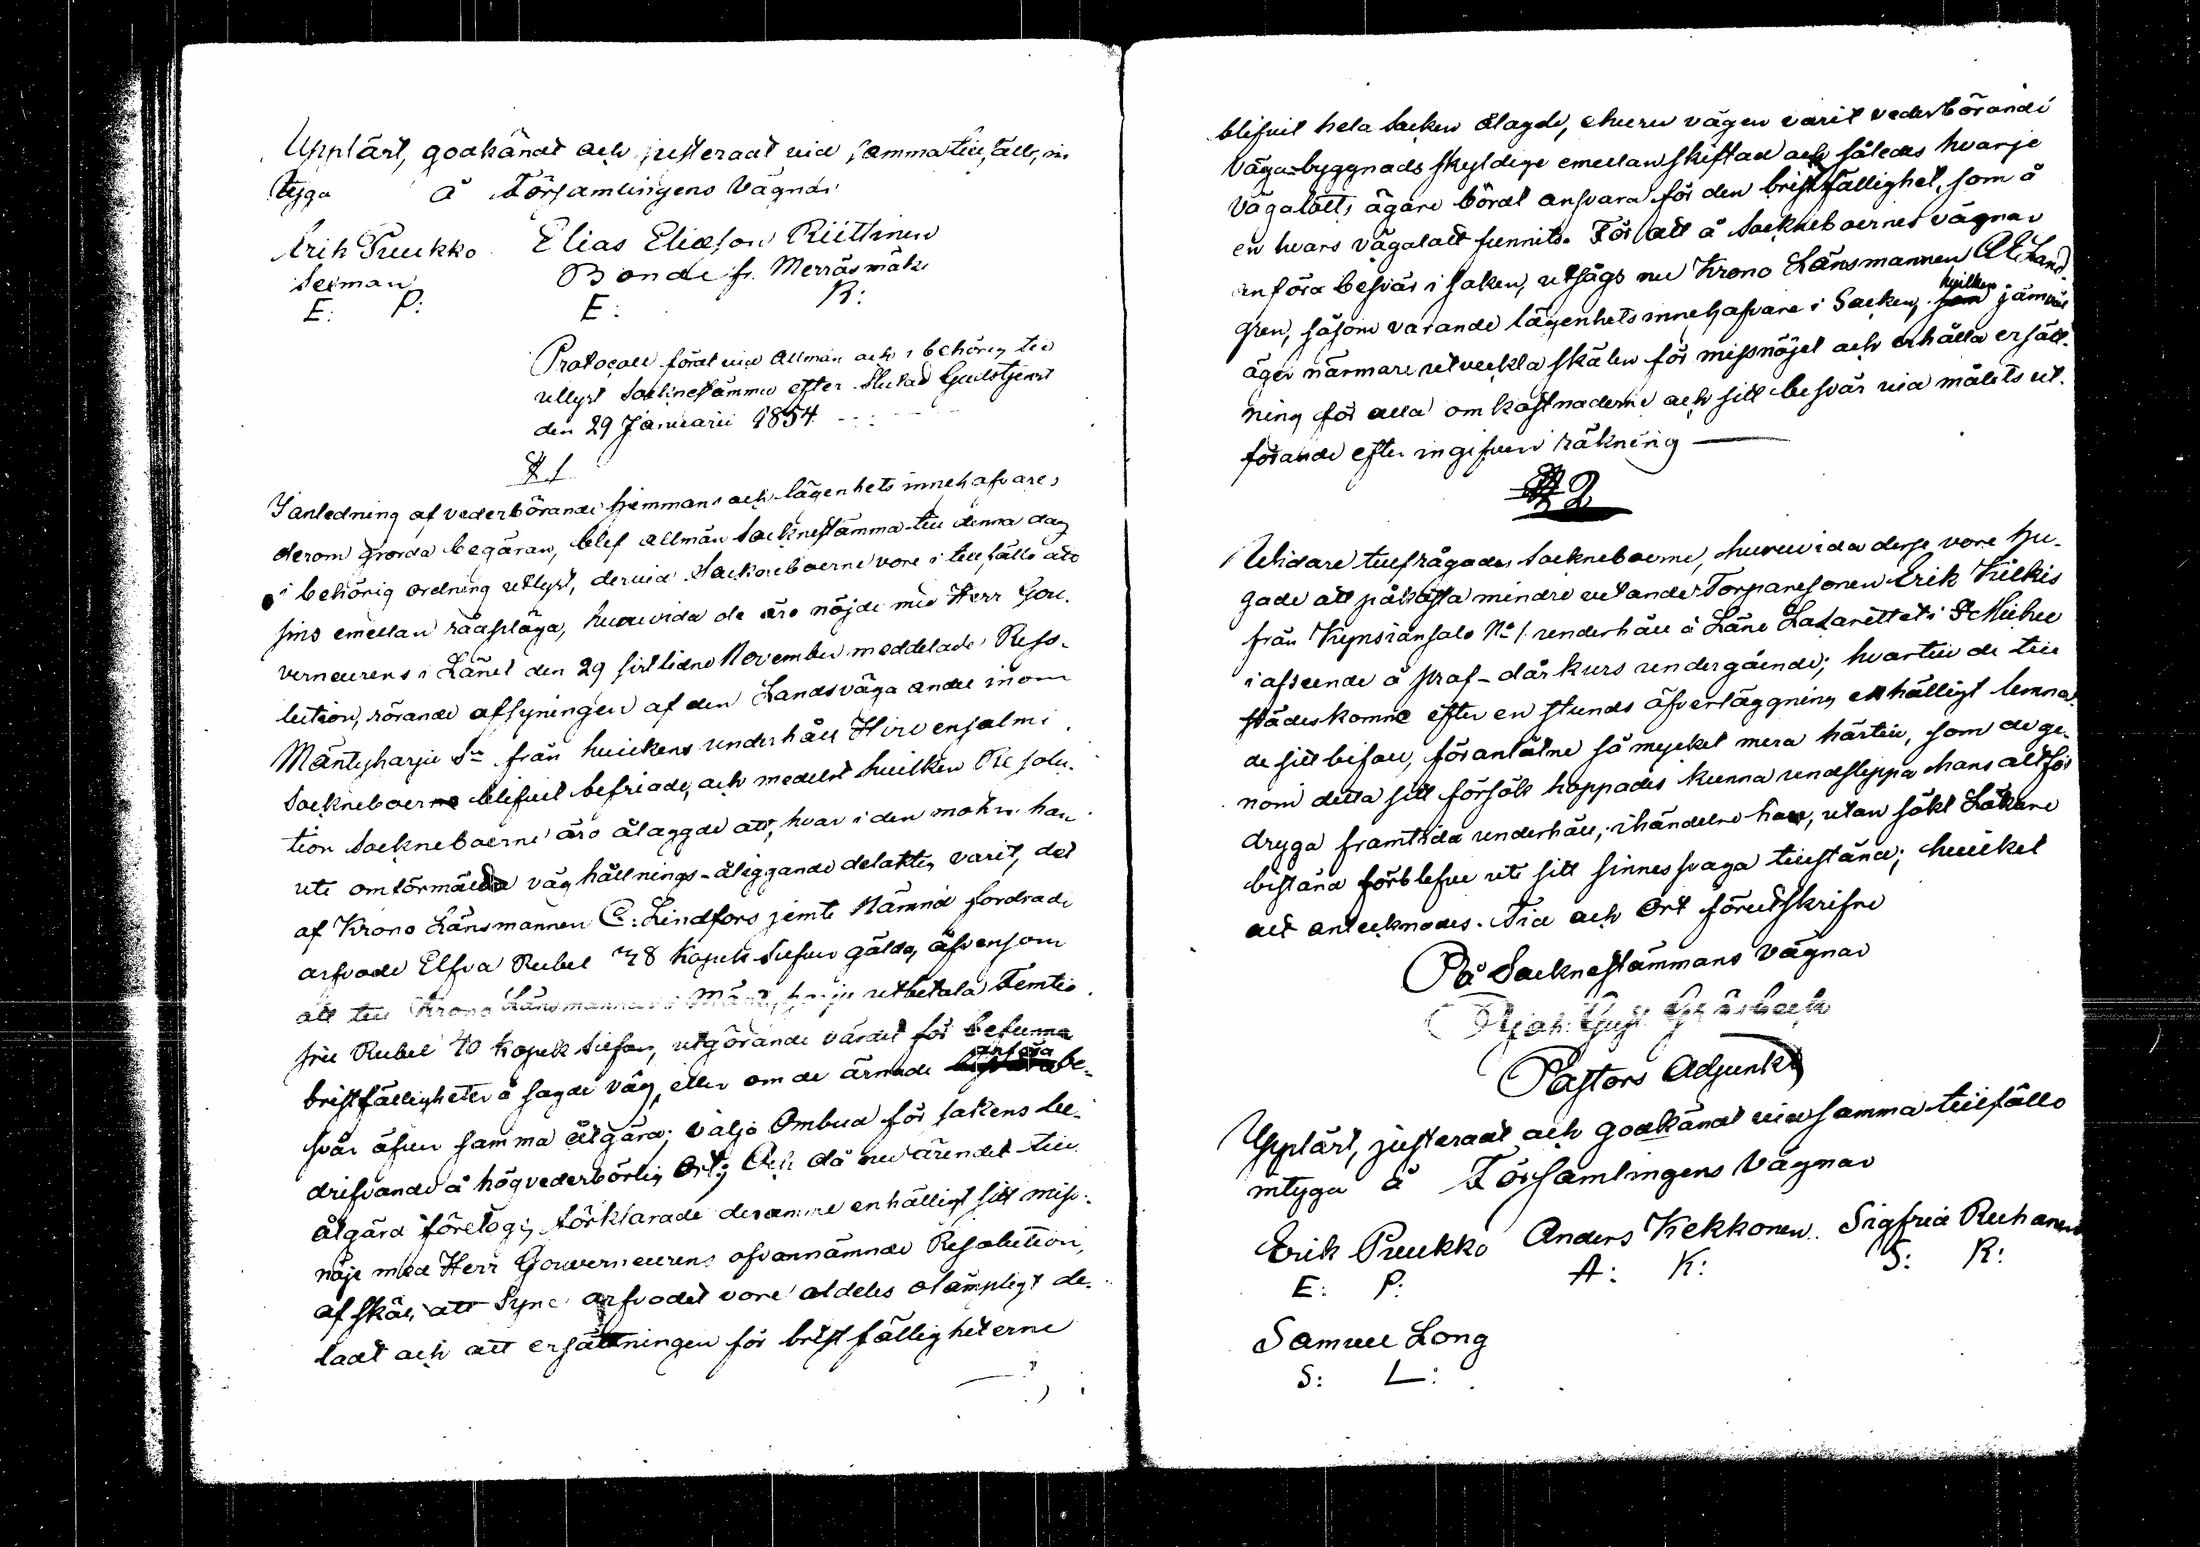 Upplärt, godkändt och justeradt vid samma tillfälle, in
tyga å Församlingens Vägnar
Erik Puukko Elias Eliasson Riittinen
Sexman Bonde fr. Merräsmäki
E: P: E: R:
Protocoll fördt vid Allmän och i behörig tid
utlyst Socknestämma efter slutad Gudstjenst
den 29 Januarii 1854
§ 1
I anledning af vederbörande hemmans och lägenhets innehafvares
derom gjorda begäran, blef allmän Socknestämma till denna dag
i behörig ordning utlyst, dervid Sockneboerne vore i tillfälle att
sins emellan rådpläga, huruvida de äro nöjde med Herr Gou-
verneurens i Länet den 29 sistlidne November meddelade Reso-
lution, rörande afsyningen af den Landsväga andel inom
Mäntyharju Sn från hvilkens underhåll Hirvensalmi
Sockneboerne blifvit befriade, och medelst hvilken Resolu-
tion Sockneboerne äro ålaggde att, hvar i den mohn han
uti omförmälda väghållnings-åliggande delaktig varit, det
af Krono Länsmannen C: Lindfors jemte Nämnd fordrade
arfvode Elfva Rubel 78 Kopek Silfver gälda, äfvensom
att till Krono Länsmannen i Mäntyharju utbetala Femtio
fyra Rubel 40 Kopek Silfver, utgörande värdet för befunna
bristfälligheter å sagde väg, eller om de ärnade anföra be-
svär öfver samma åtgärd; välja Ombud för sakens be-
drifvande å högvederbörlig Ort; Och då nu ärendet till
åtgärd företogs, förklarade desamme enhälligt sitt miss-
nöje med Herr Gouverneurens ofvannämnde Resolution,
af skäl, att Syne arfvodet vore aldeles olämpligt de-
ladt och att ersättningen för bristfälligheterne
blifvit hela Socken ålagde, ehuru vägen varit vederbörande
Vägabyggnads skyldige emellan skiftad och således hvarje
Vägalotts ägare bördt ansvara för den bristfällighet, som å
en hvars vägalott funnits. För att å Sockneboernes vägnar
anföra besvär i saken, utsågs nu Krono Länsmannen A E Land-
gren, såsom varande lägenhets innehafvare i Socken, hvilken jämväl
äger närmare utveckla skälen för missnöjet och erhålla ersätt-
ning för alla omkostnaderne och sitt besvär vid målets ut-
förande efter ingifven räkning
§ 2
Widare tillfrågades Sockneboerne, huruvida desse vore hu-
gade att påkosta mindre vetande Torparesonen Erik Kilkis
från Kynsiänsalo No 1. underhåll å Läns Lazarettet i St Michel
i afseende å prof-dårkurs undergående; hvartill de till
städeskomne efter en stunds öfverläggning enhälligt lemna-
de sitt bifall, föranlåtne så mycket mera härtill, som de ge-
nom detta sitt försök hoppades kunna undslippa hans altför
dryga framtida underhåll, i händelse han, utan sökt Läkare
bistånd förblefve uti sitt sinnessvaga tillstånd; hvilket
allt antecknades. Tid och Ort förutskrifne
På Socknestämmans Vägnar
Pastors Adjunkt
Upplärt, justeradt och godkändt vid samma tillfälle
intyga å Församlingens Vägnar
Erik Puukko Anders Kekkonen Sigfrid Ruhanen
E: P: A: K: S: R:
Samuel Long
S: L: